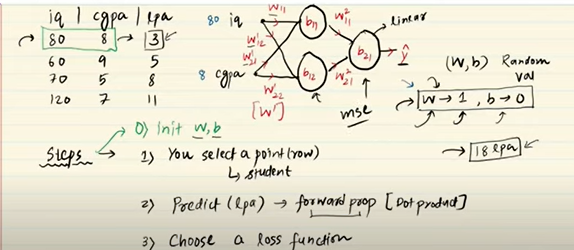 iq | cgpa | lpa
80 8 3
60 9 5
70 5 8
120 7 11
80 iq
8 cgpa
w¹₁₁
w¹₁₂
w¹₂₁
w¹₂₂
[W¹]
b₁₁
b₁₂
w²₁₁
w²₂₁
b₂₁
linear
ŷ
mse
(W, b) Random val
W → 1 , b → 0
18 lpa
Steps
0) Init w, b
1) You select a point (row)
↳ student
2) Predict (lpa) → forward prop [Dot product]
3) Choose a loss function